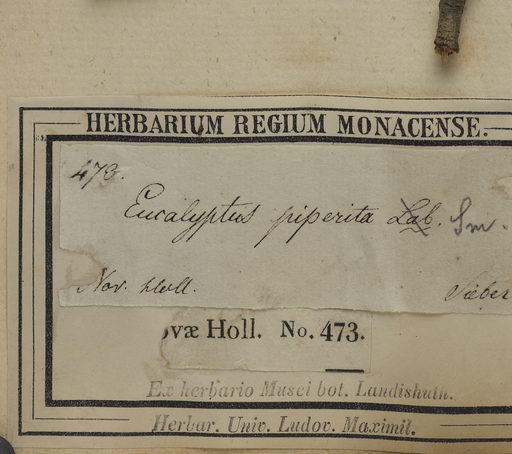 HERBARIUM REGIUM MONACENSE.
473.
Eucalyptus piperita Lab. Sm.
Nov. Holl.
Sieber
ovæ Holl. No. 473.
Ex herbario Musei bot. Landishuth.
Herbar. Univ. Ludov. Maximil.